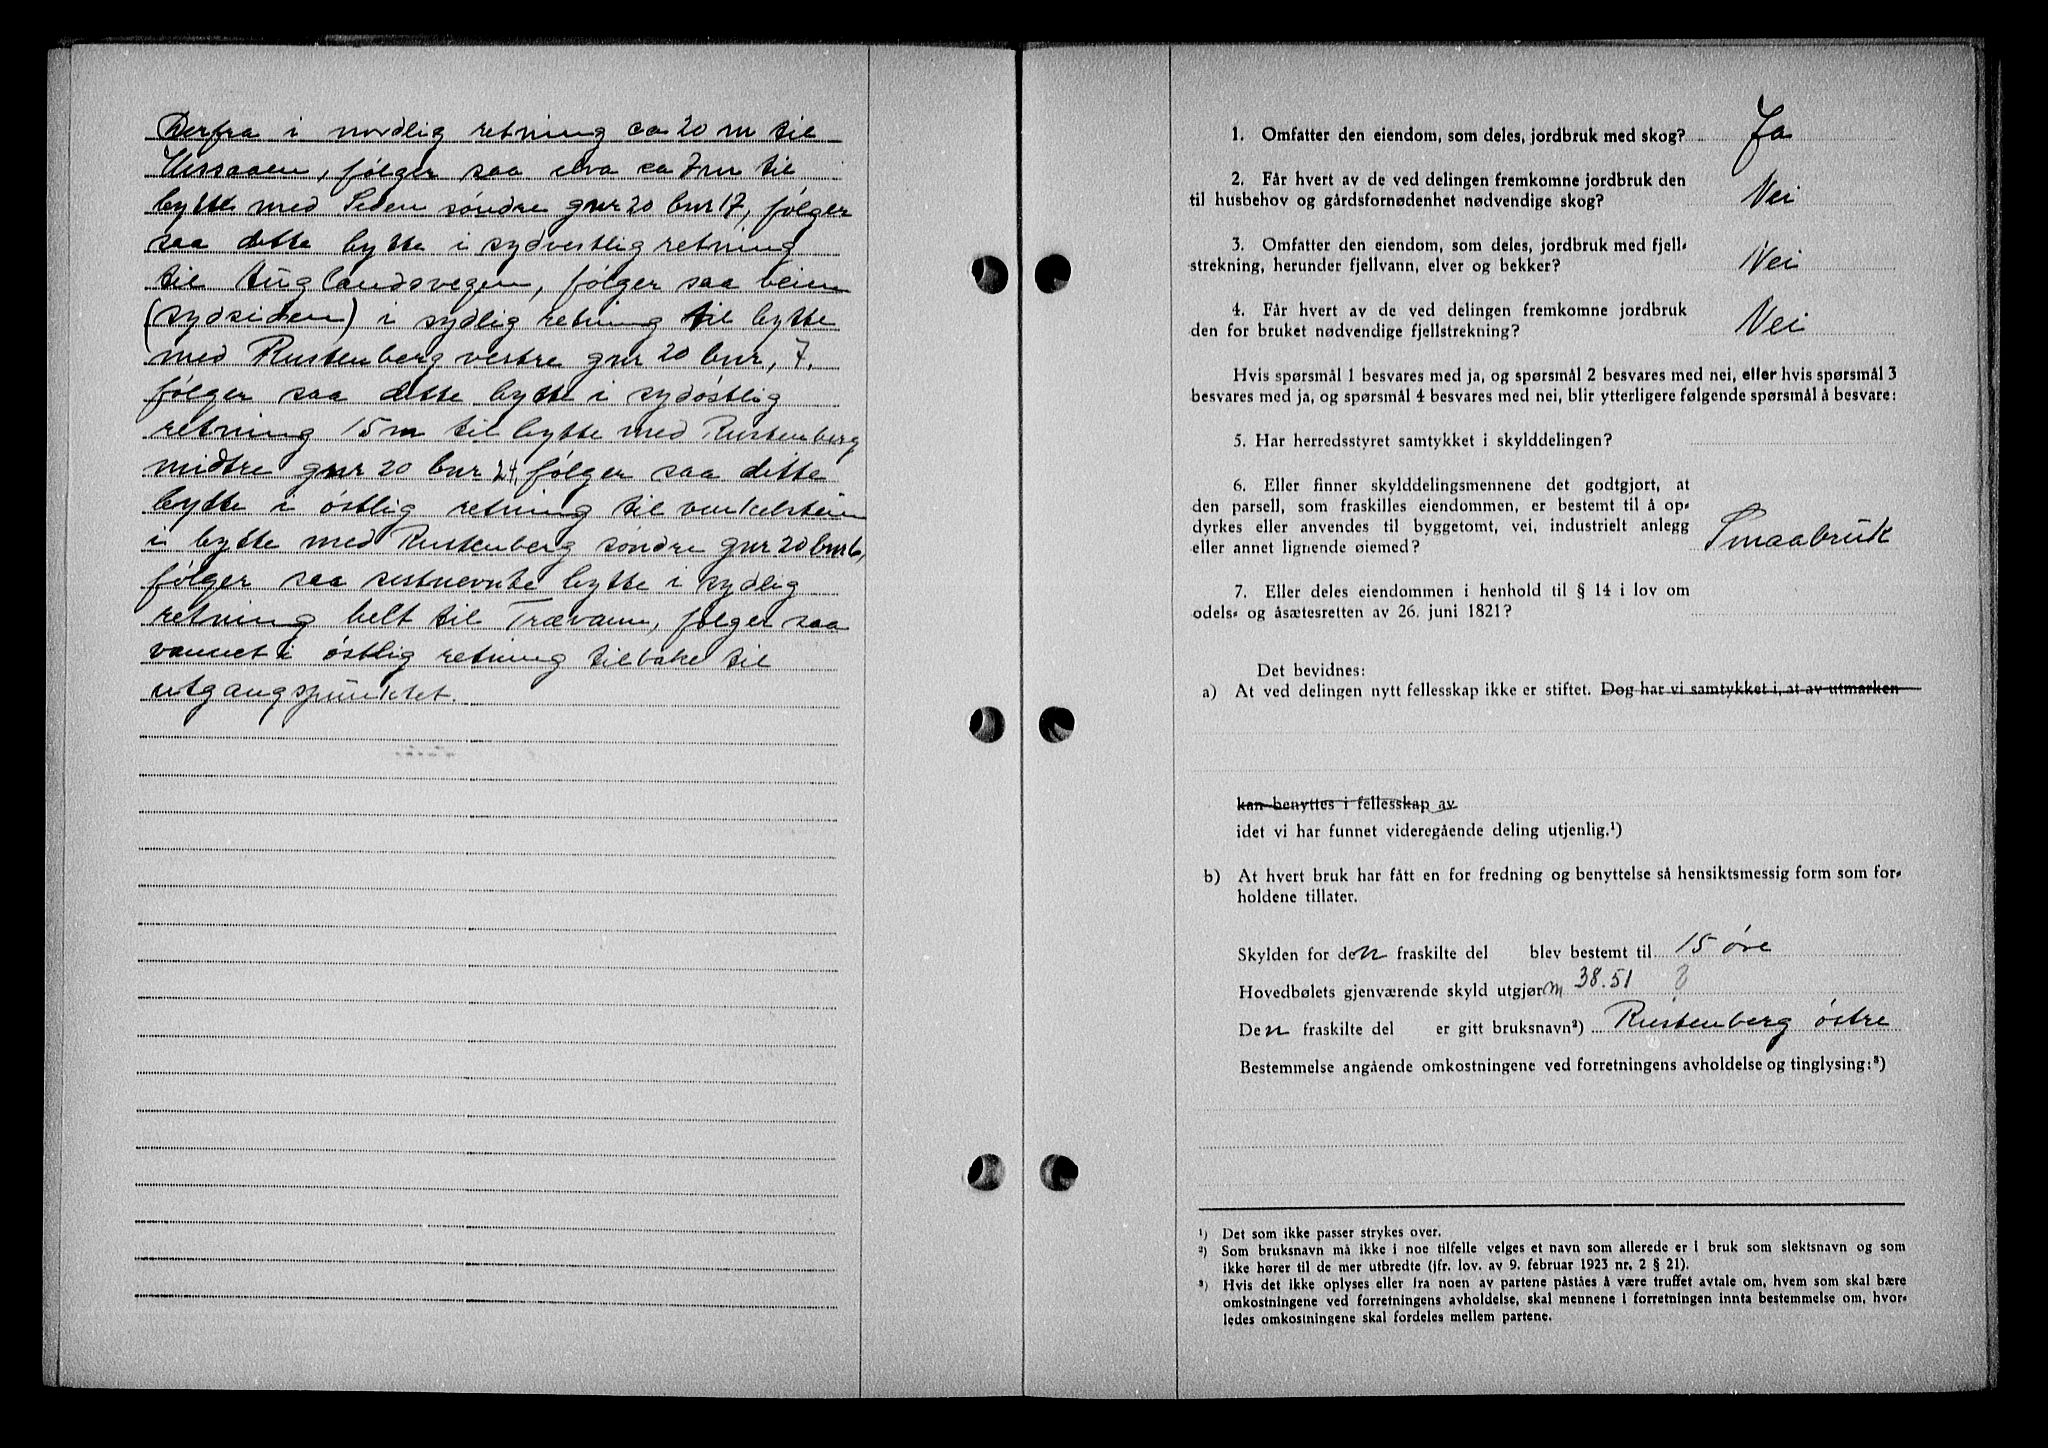 Derfra i nordlig retning ca 20 m til
følger saa elva ca 7 m til
bytte med Seden søndre gnr 20 bnr 17, følger
saa dette bytte i sydvestlig retning
til Auglandsvegen, følger saa veien
(sydsiden) i sydlig retning til bytte
med Rustenberg vestre gnr 20 bnr, 7,
følger saa dette bytte i sydøstlig
retning 15 m til bytte med Rustenberg
midtre gnr 20 bnr 24, følger saa dette
bytte i østlig retning til vinkelstein
i bytte med Rustenberg søndre gnr 20 bnr 6,
følger saa sistnevnte bytte i sydlig
retning helt til Trævann, følger saa
vannet i østlig retning tilbake til
utgangspunktet.
1. Omfatter den eiendom, som deles, jordbruk med skog? Ja
2. Får hvert av de ved delingen fremkomne jordbruk den
til husbehov og gårdsfornødenhet nødvendige skog? Nei
3. Omfatter den eiendom, som deles, jordbruk med fjell-
strekning, herunder fjellvann, elver og bekker? Nei
4. Får hvert av de ved delingen fremkomne jordbruk
den for bruket nødvendige fjellstrekning? Nei
Hvis spørsmål 1 besvares med ja, og spørsmål 2 besvares med nei, eller hvis spørsmål 3
besvares med ja, og spørsmål 4 besvares med nei, blir ytterligere følgende spørsmål å besvare:
5. Har herredsstyret samtykket i skylddelingen?
6. Eller finner skylddelingsmennene det godtgjort, at
den parsell, som fraskilles eiendommen, er bestemt til å op-
dyrkes eller anvendes til byggetomt, vei, industrielt anlegg
eller annet lignende øiemed? Smaabruk
7. Eller deles eiendommen i henhold til § 14 i lov om
odels- og åsætesretten av 26. juni 1821?
Det bevidnes:
a) At ved delingen nytt fellesskap ikke er stiftet. Dog har vi samtykket i, at av utmarken
kan benyttes i fellesskap av
idet vi har funnet videregående deling utjenlig.¹)
b) At hvert bruk har fått en for fredning og benyttelse så hensiktsmessig form som for-
holdene tillater.
Skylden for den fraskilte del blev bestemt til 15 øre
Hovedbølets gjenværende skyld utgjør m 38.51
Den fraskilte del er gitt bruksnavn²) Rustenberg østre
Bestemmelse angående omkostningene ved forretningens avholdelse og tinglysing:³)
¹) Det som ikke passer strykes over.
²) Som bruksnavn må ikke i noe tilfelle velges et navn som allerede er i bruk som slektsnavn og som
ikke hører til de mer utbredte (jfr. lov. av 9. februar 1923 nr. 2 § 21).
³) Hvis det ikke oplyses eller fra noen av partene påståes å være truffet avtale om, hvem som skal bære
omkostningene ved forretningens avholdelse, skal mennene i forretningen innta bestemmelse om, hvor-
ledes omkostningene skal fordeles mellem partene.